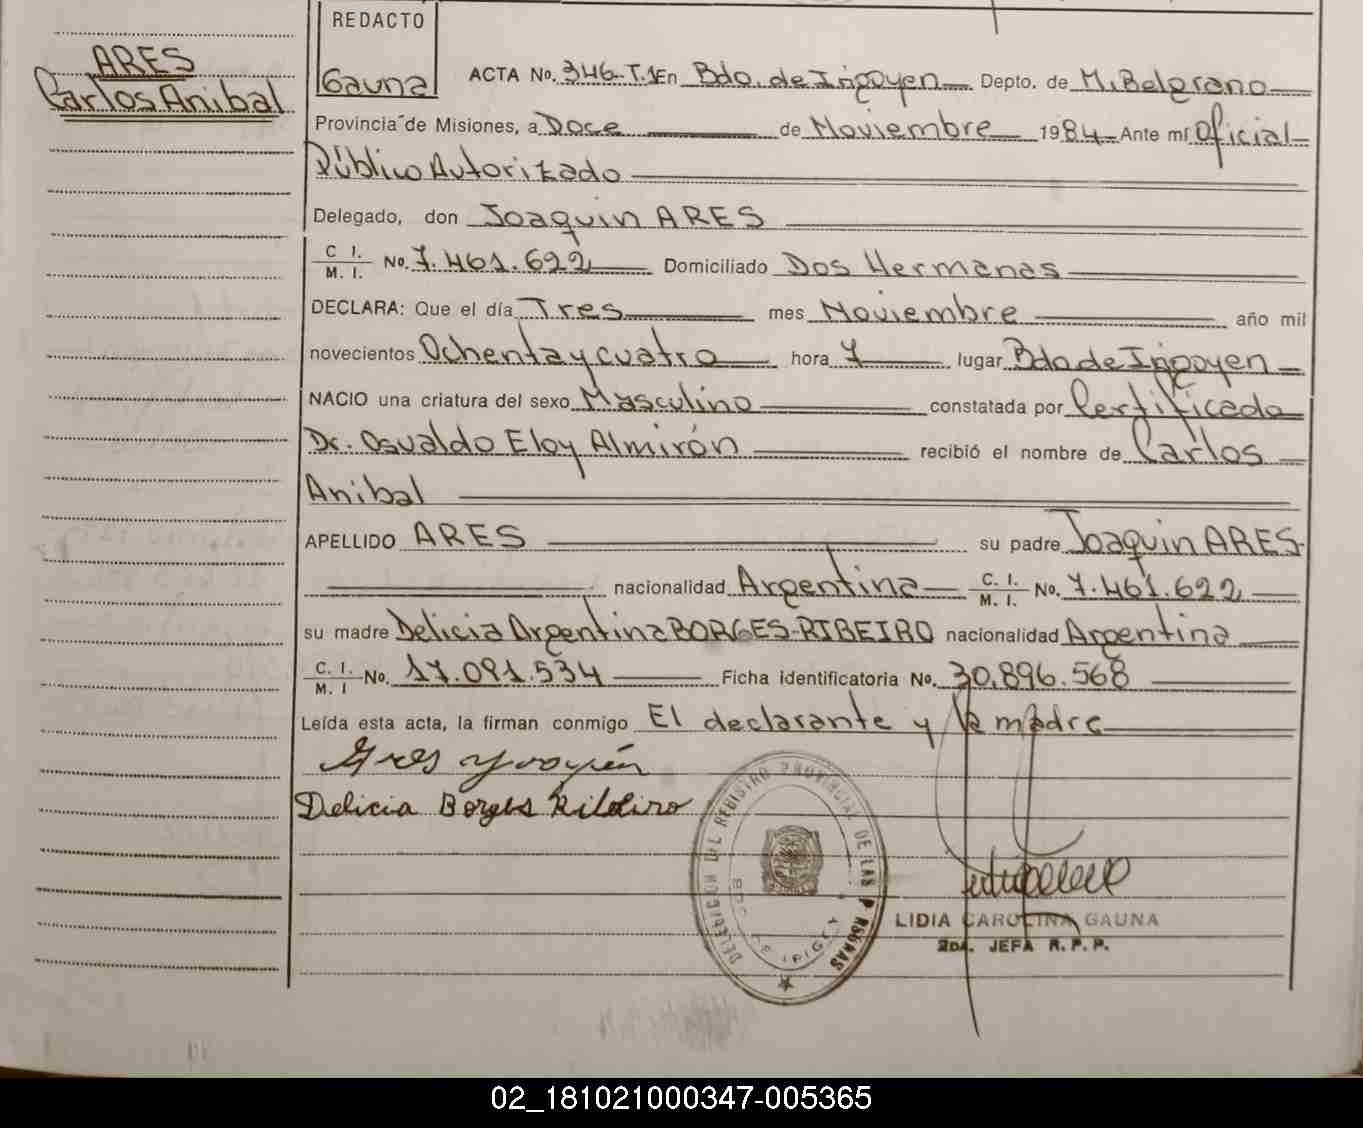 ARES
Carlos Anibal
REDACTO
Gauna
ACTA No. 346-T.1 En Bdo. de Irigoyen Depto. de M. Belgrano
Provincia de Misiones, a Doce de Noviembre 1984 Ante mí Oficial
Público Autorizado
Delegado, don Joaquin ARES
C. I. / M. I. No. 7.461.622 Domiciliado Dos Hermanas
DECLARA: Que el día Tres mes Noviembre año mil
novecientos Ochenta y cuatro hora 7 lugar Bdo de Irigoyen
NACIO una criatura del sexo Masculino constatada por Certificado
Dr. Osvaldo Eloy Almirón recibió el nombre de Carlos
Anibal
APELLIDO ARES su padre Joaquin ARES
nacionalidad Argentina C. I. / M. I. No. 7.461.622
su madre Delicia Argentina BORGES-RIBEIRO nacionalidad Argentina
C. I. / M. I No. 17.091.534 Ficha Identificatoria No. 30.896.568
Leída esta acta, la firman conmigo El declarante y la madre
Ares
Delicia Borges
DELEGACION DEL REGISTRO PROVINCIAL DE LAS PERSONAS
LIDIA CAROLINA GAUNA
2da. JEFA R. P. P.
02_181021000347-005365